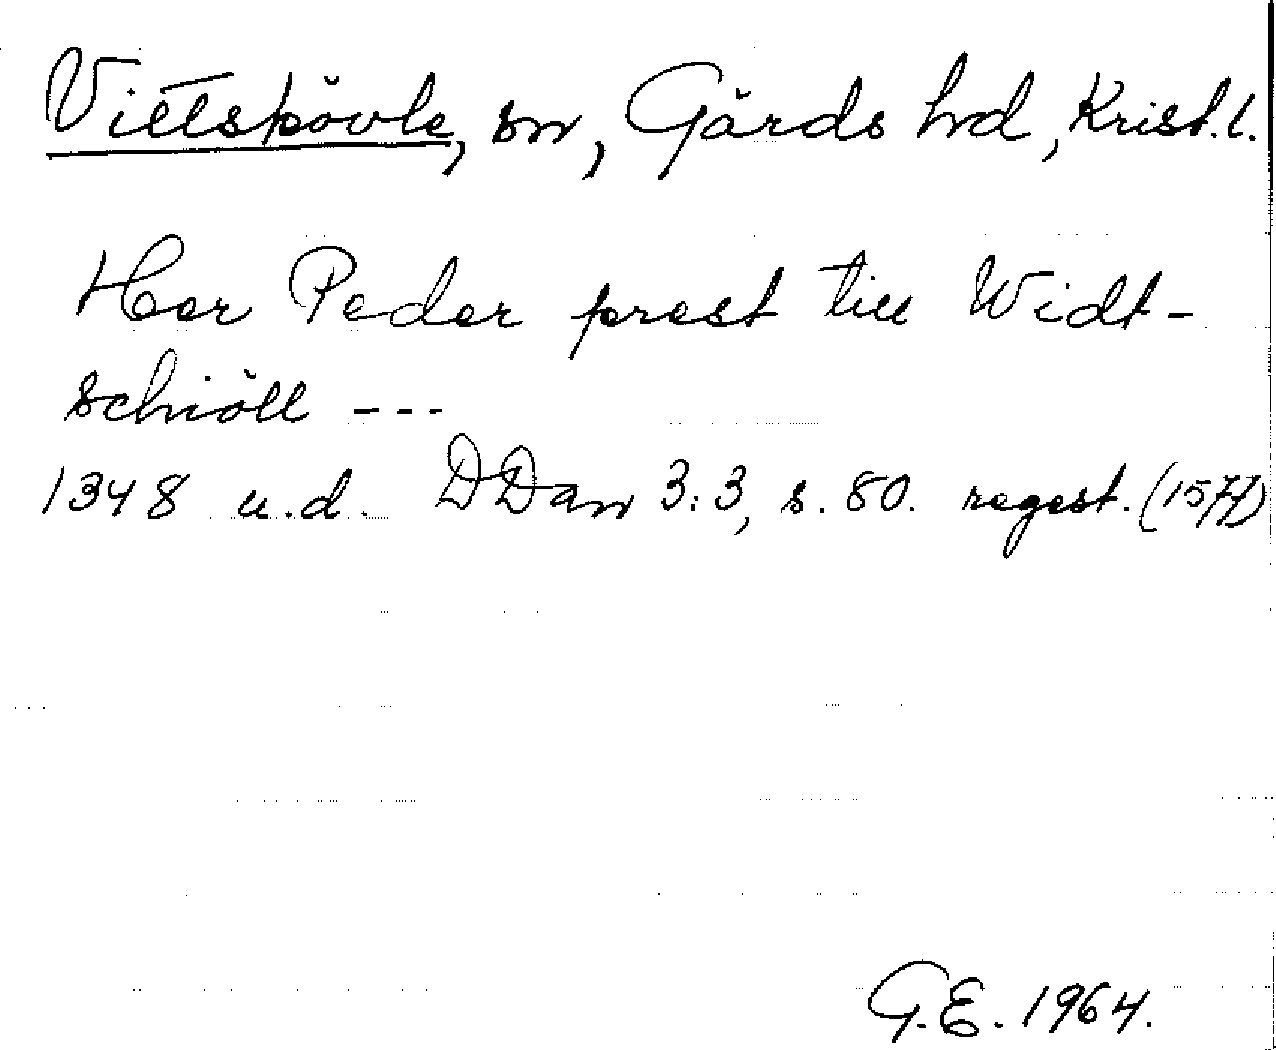 Vittskövle, sn, Gärds hd, Krist. l.
Her Peder prest till Widt-
schiöll ---
1348 u.d. DDan 3:3, s. 80. regest. (1577)
G.E. 1964.